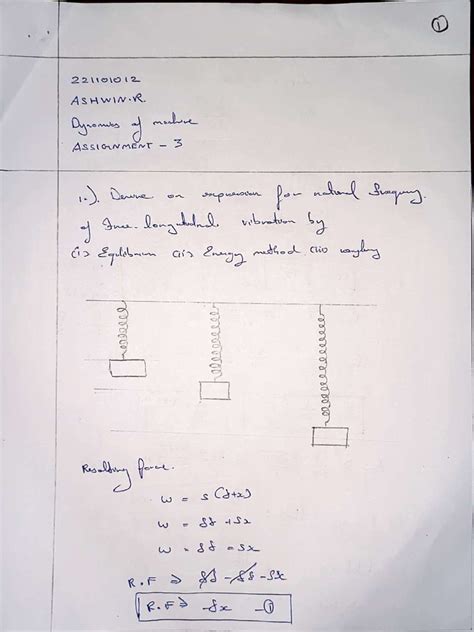 1
221101012
ASHWIN.R.
Dynamics of machine
ASSIGNMENT - 3
1.). Derive an expression for natural frequency
of free longitudinal vibration by
(i) Equilibrium (ii) Energy method (iii)
Resulting force.
W = s(δ+x)
W = sδ + sx
W = sδ = sx
R.F ⇒ sδ - sδ - sx
R.F ⇒ -sx - ①